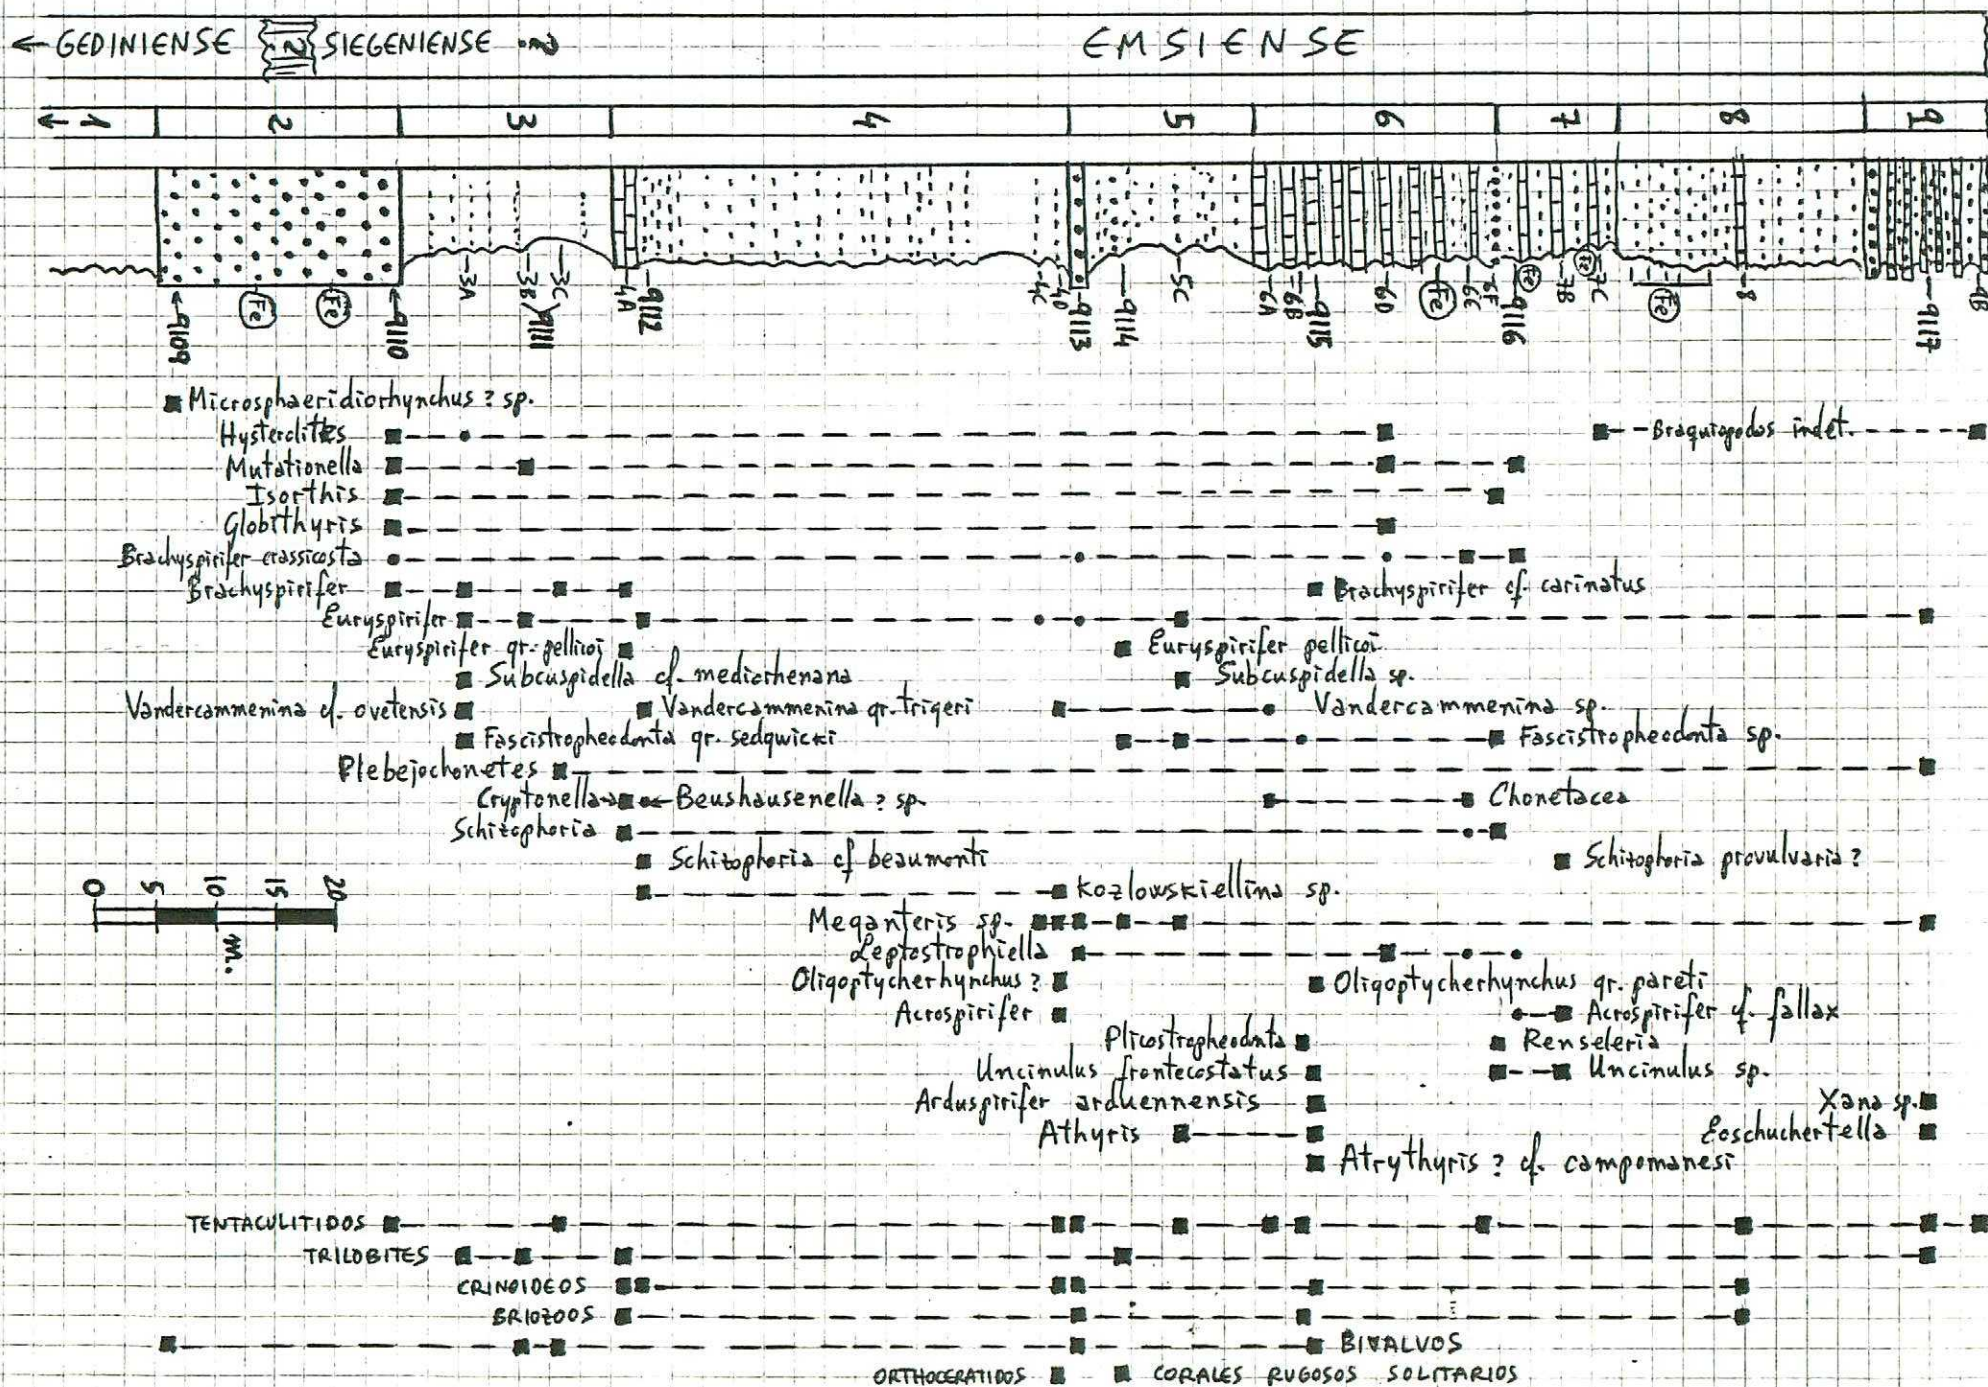 ← GEDINIENSE ? SIEGENIENSE ? EMSIENSE
1 2 3 4 5 6 7 8 9
3A 3B 3C 4A 4C 4D 5C 6A 6B 6D 6E 6F 7B 7C 8 9B
9109 Fe Fe 9110 9111 9112 9113 9114 9115 Fe 9116 Fe Fe Fe 9117
Microsphaeridiorhynchus ? sp.
Hysterolites Braquiopodos indet.
Mutationella
Isorthis
Globithyris
Brachyspirifer crassicosta
Brachyspirifer Brachyspirifer cf. carinatus
Euryspirifer
Euryspirifer gr. pellicoi Euryspirifer pellicoi
Subcuspidella cf. mediorhenana Subcuspidella sp.
Vandercammenina cf. ovetensis Vandercammenina gr. trigeri Vandercammenina sp.
Fascistropheodonta gr. sedgwicki Fascistropheodonta sp.
Plebejochonetes
Cryptonella → ← Beushausenella ? sp. Chonetacea
Schizophoria
Schizophoria cf beaumonti Schizophoria provulvaria ?
0 5 10 15 20 Kozlowskiellina sp.
m. Meganteris sp.
Leptostrophiella
Oligoptycherhynchus ? Oligoptycherhynchus gr. pareti
Acrospirifer Acrospirifer cf. fallax
Plicostropheodonta Renseleria
Uncinulus frontecostatus Uncinulus sp.
Arduspirifer arduennensis Xana sp.
Athyris Eoschuchertella
Atrythyris ? cf. campomanesi
TENTACULITIDOS
TRILOBITES
CRINOIDEOS
BRIOZOOS
BIVALVOS
ORTHOCERATIDOS CORALES RUGOSOS SOLITARIOS